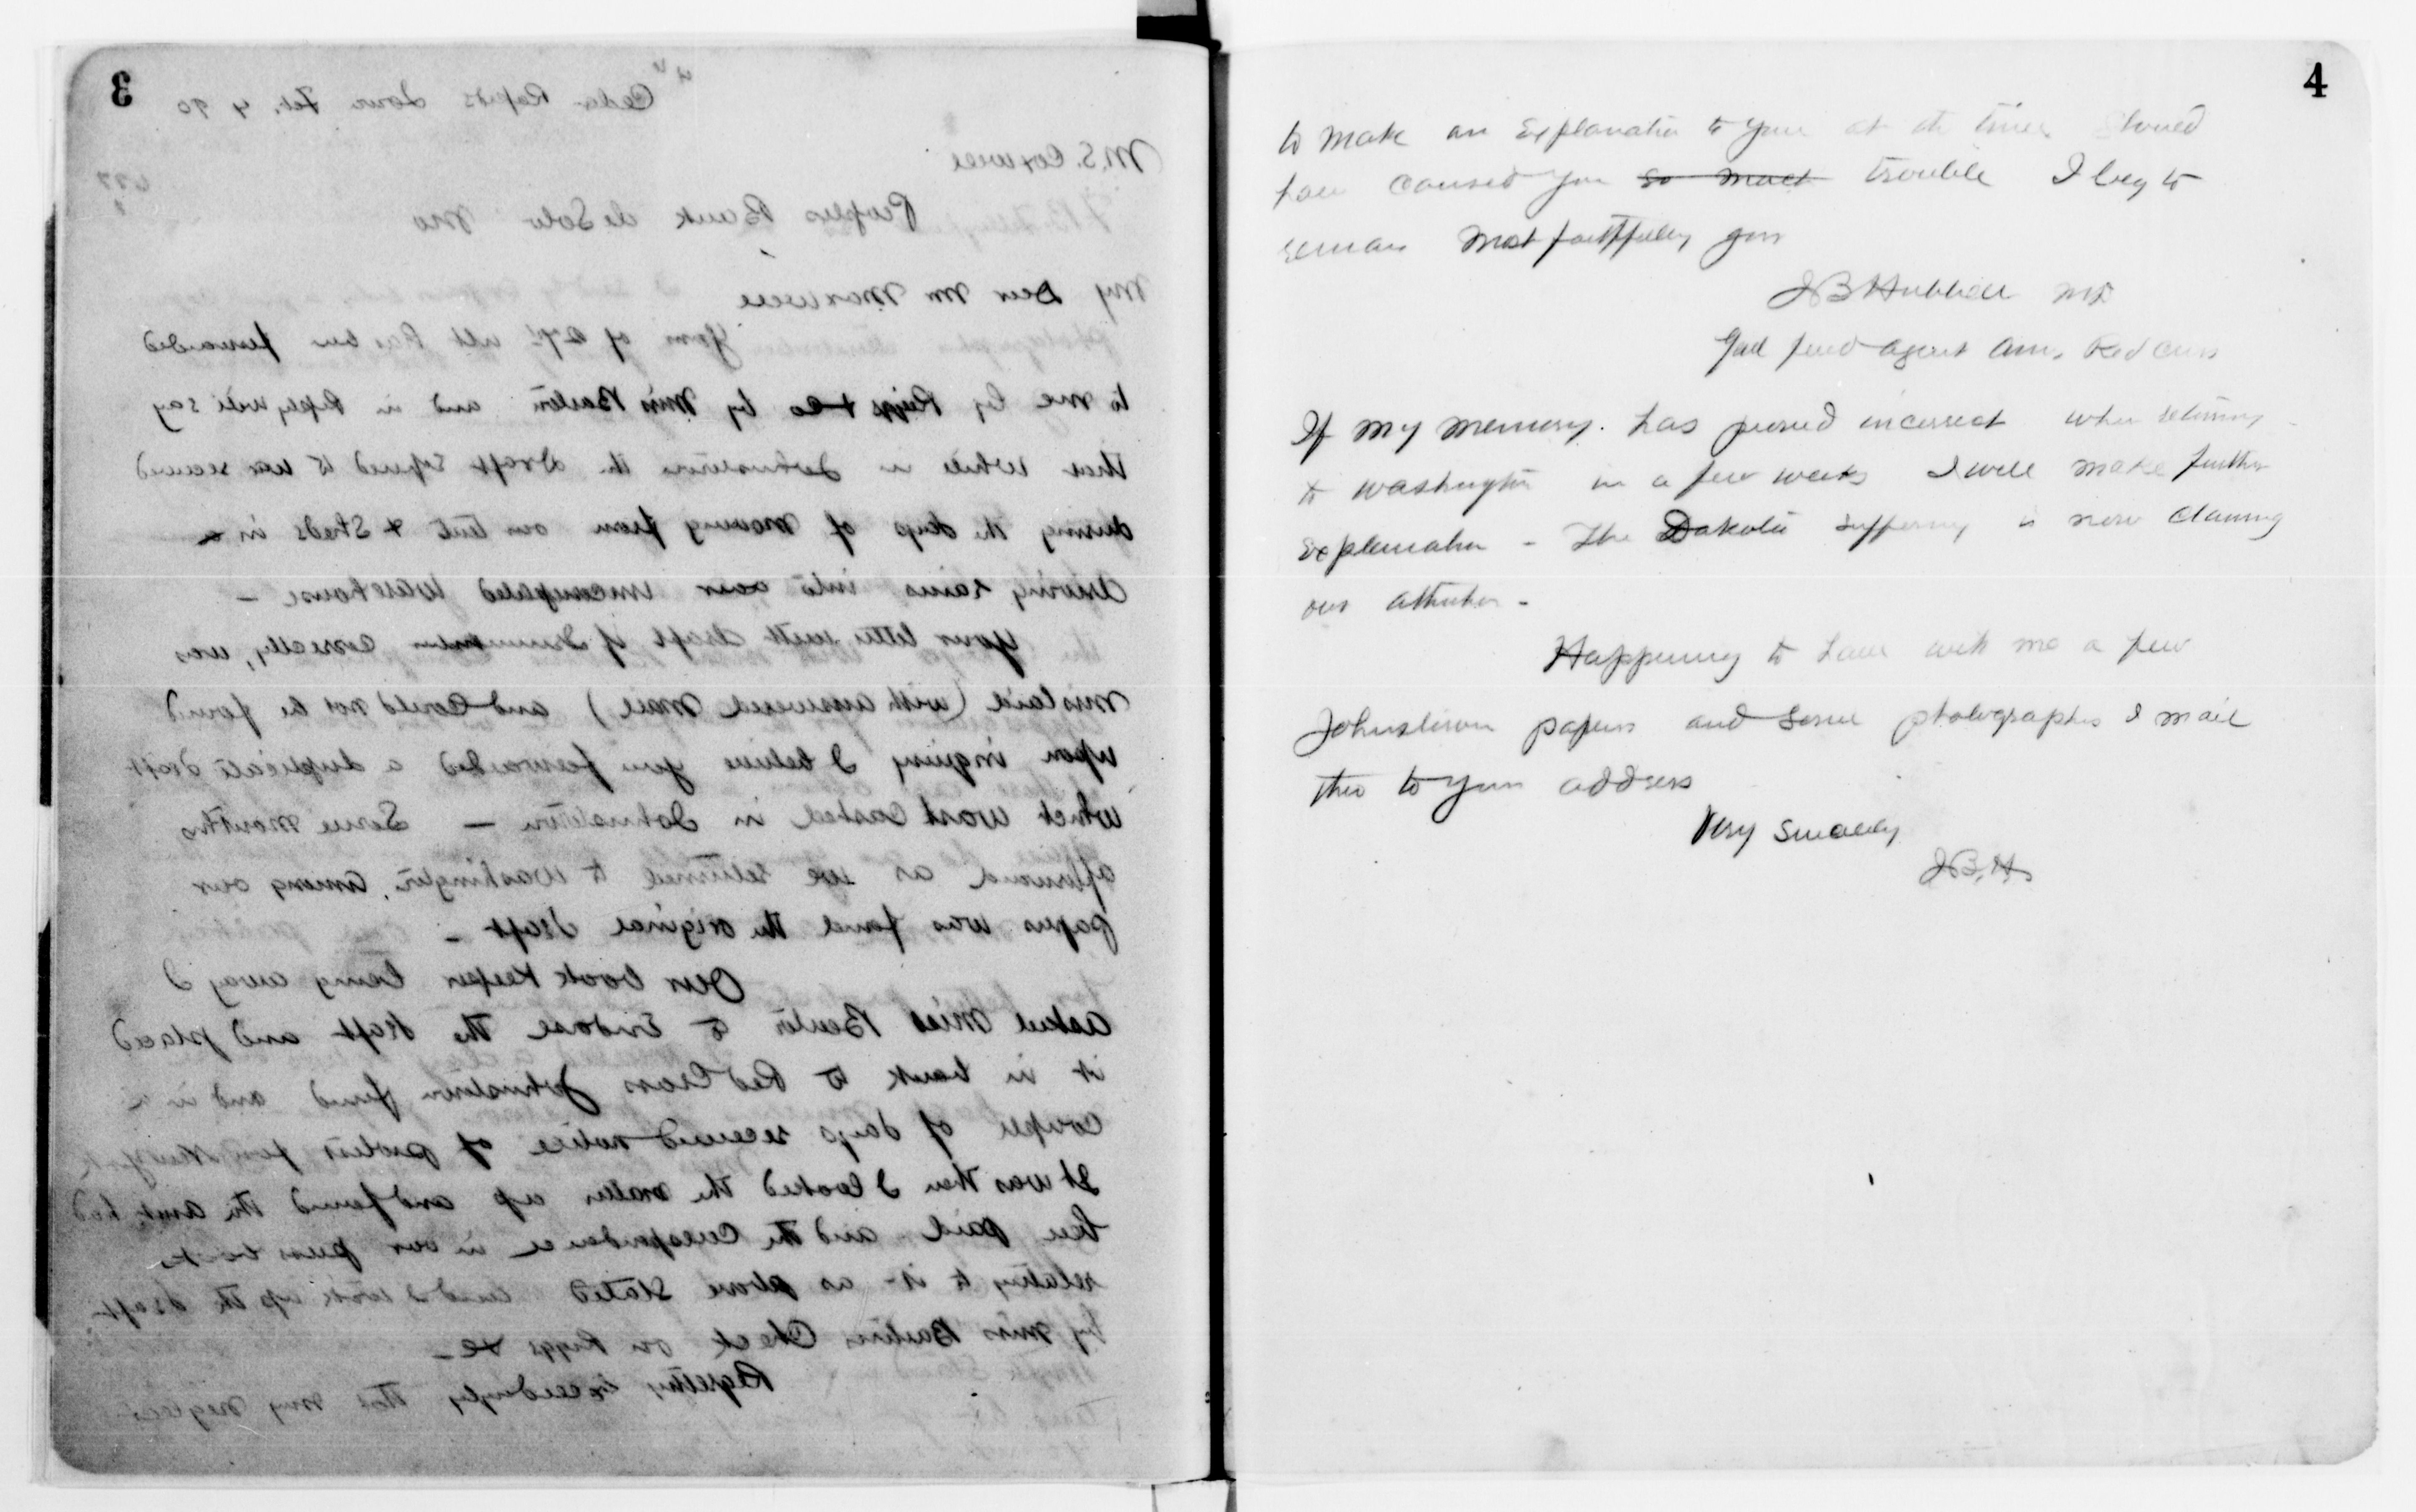 3
Cedar Rapids Iowa Feb. 4 90
M.S. Coxwell
Peoples Bank de Soto Mo
My Dear Mr
Yours of 27th ult has been forwarded
to me by Riggs & Co by Miss Barton and in reply will say
that while in Johnstown the draft refered to was received
during the days of moving from our tent & sheds in a
driving rains into our uncompleted warehouse -
Your letter with draft if I remember correctly, was
mislaid (with answered mail) and could not be found
upon inquiry I believe you forwarded a duplicate draft
which was cashed in Johnstown - Some months
afterward as we returned to Washington, among our
papers was found the original draft -
Our book keeper being away I
asked Miss Barton to endorse the draft and placed
it in bank to Red Cross Johnstown fund and in a
couple of days received notice of protest from New York
It was then I looked the matter up and found the amt. had
been paid and the correspondence in our press books
relating to it as above stated and I took up the draft
by Miss Bartons check on Riggs & Co -
Regretting exceedingly that my neglect
4
to make an explanation to you at the time should
have caused you so much trouble I beg to
remain most faithfully yours
J B Hubbell MD
Genl field agent Am. Red Cross
If my memory has proved incorrect when returning
to Washington in a few weeks I will make further
explanation - The Dakota suffering is now claiming
our attention -
Happening to have with me a few
Johnstown papers and some photographs I mail
them to your address
Very Sincerely
J.B.H.